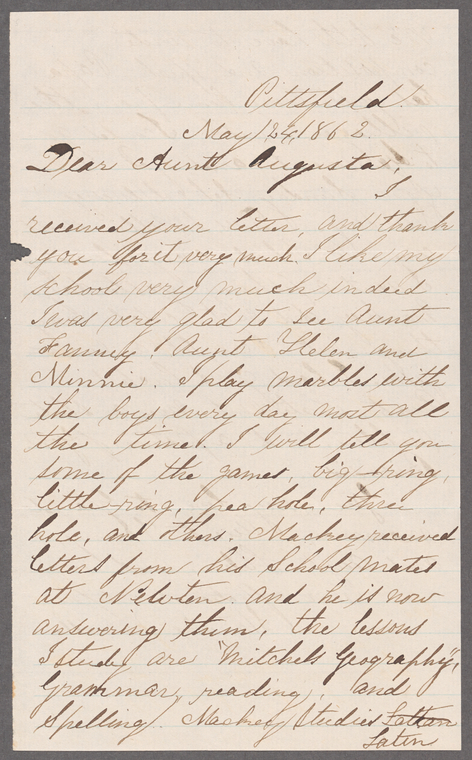 Pittsfield
May 24, 1862.
Dear Aunt Augusta,
I
received your letter, and thank
you for it very much. I like my
school very much indeed
I was very glad to see Aunt
Fanney. Aunt Helen and
Minnie. I play marbles with
the boys every day most all
the time. I will tell you
some of the games, big-ring,
little-ring, pea hole, three
hole, and others. Mackey received
letters from his School mates
at Newton. and he is now
answering them, the lessons
I study are "Mitchels Geography",
Grammar, reading, and
Spelling. Mackey Studies Latten
Latin